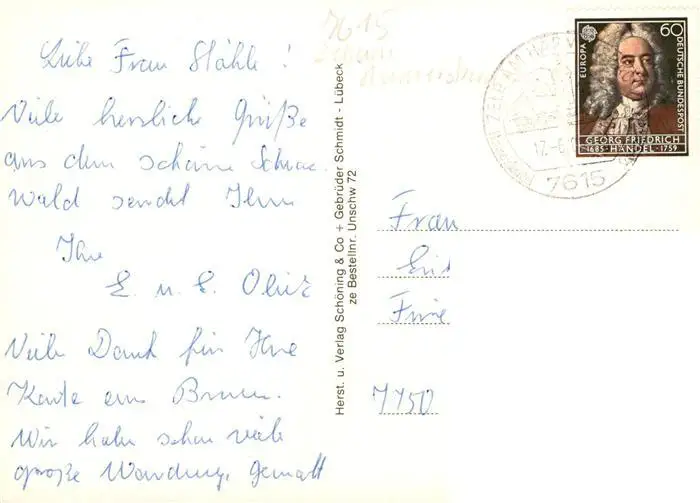 Liebe Frau Stähle!
Viele herzliche Grüße
aus dem schöne Schwarz
wald sendet Ihnen
Ihre
E. u. E.
Viele Dank für Ihre
Karte aus
Wir haben schon viele
große Wanderung. gemacht
7615
Herst. u. Verlag Schöning & Co + Gebrüder Schmidt - Lübeck
ze Bestellnr. Unschw 72
EUROPA
60
DEUTSCHE BUNDESPOST
GEORG FRIEDRICH
1685 HÄNDEL 1759
ZELL AM HAR
7615
Frau
7750